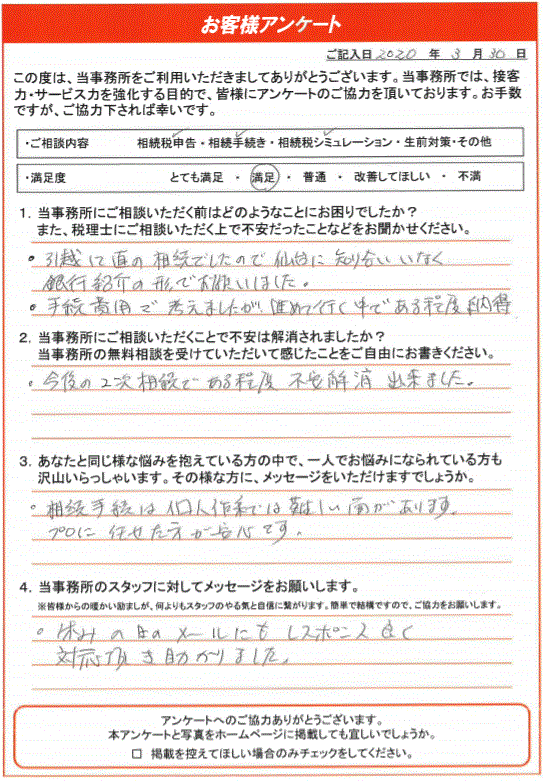 お客様アンケート
ご記入日 2020 年 3 月 30 日
この度は、当事務所をご利用いただきましてありがとうございます。当事務所では、接客
力・サービス力を強化する目的で、皆様にアンケートのご協力を頂いております。お手数
ですが、ご協力下されば幸いです。
・ご相談内容 相続税申告・相続手続き・相続税シミュレーション・生前対策・その他
・満足度 とても満足 ・ 満足 ・ 普通 ・ 改善してほしい ・ 不満
1. 当事務所にご相談いただく前はどのようなことにお困りでしたか？
また、税理士にご相談いただく上で不安だったことなどをお聞かせください。
・引越して直の相続でしたので仙台に知り合いいなく
銀行紹介の形でお願いしました。
・手続費用で考えましたが、進めて行く中である程度納得
2. 当事務所にご相談いただくことで不安は解消されましたか？
当事務所の無料相談を受けていただいて感じたことをご自由にお書きください。
・今後の2次相続である程度 不安解消 出来ました。
3. あなたと同じ様な悩みを抱えている方の中で、一人でお悩みになられている方も
沢山いらっしゃいます。その様な方に、メッセージをいただけますでしょうか。
・相続手続は個人作業では難しい面があります。
プロに任せた方が安心です。
4. 当事務所のスタッフに対してメッセージをお願いします。
※皆様からの暖かい励ましが、何よりもスタッフのやる気と自信に繋がります。簡単で結構ですので、ご協力をお願いします。
・休みの日のメールにもレスポンス良く
対応頂き助かりました。
アンケートへのご協力ありがとうございます。
本アンケートと写真をホームページに掲載しても宜しいでしょうか。
□ 掲載を控えてほしい場合のみチェックをしてください。